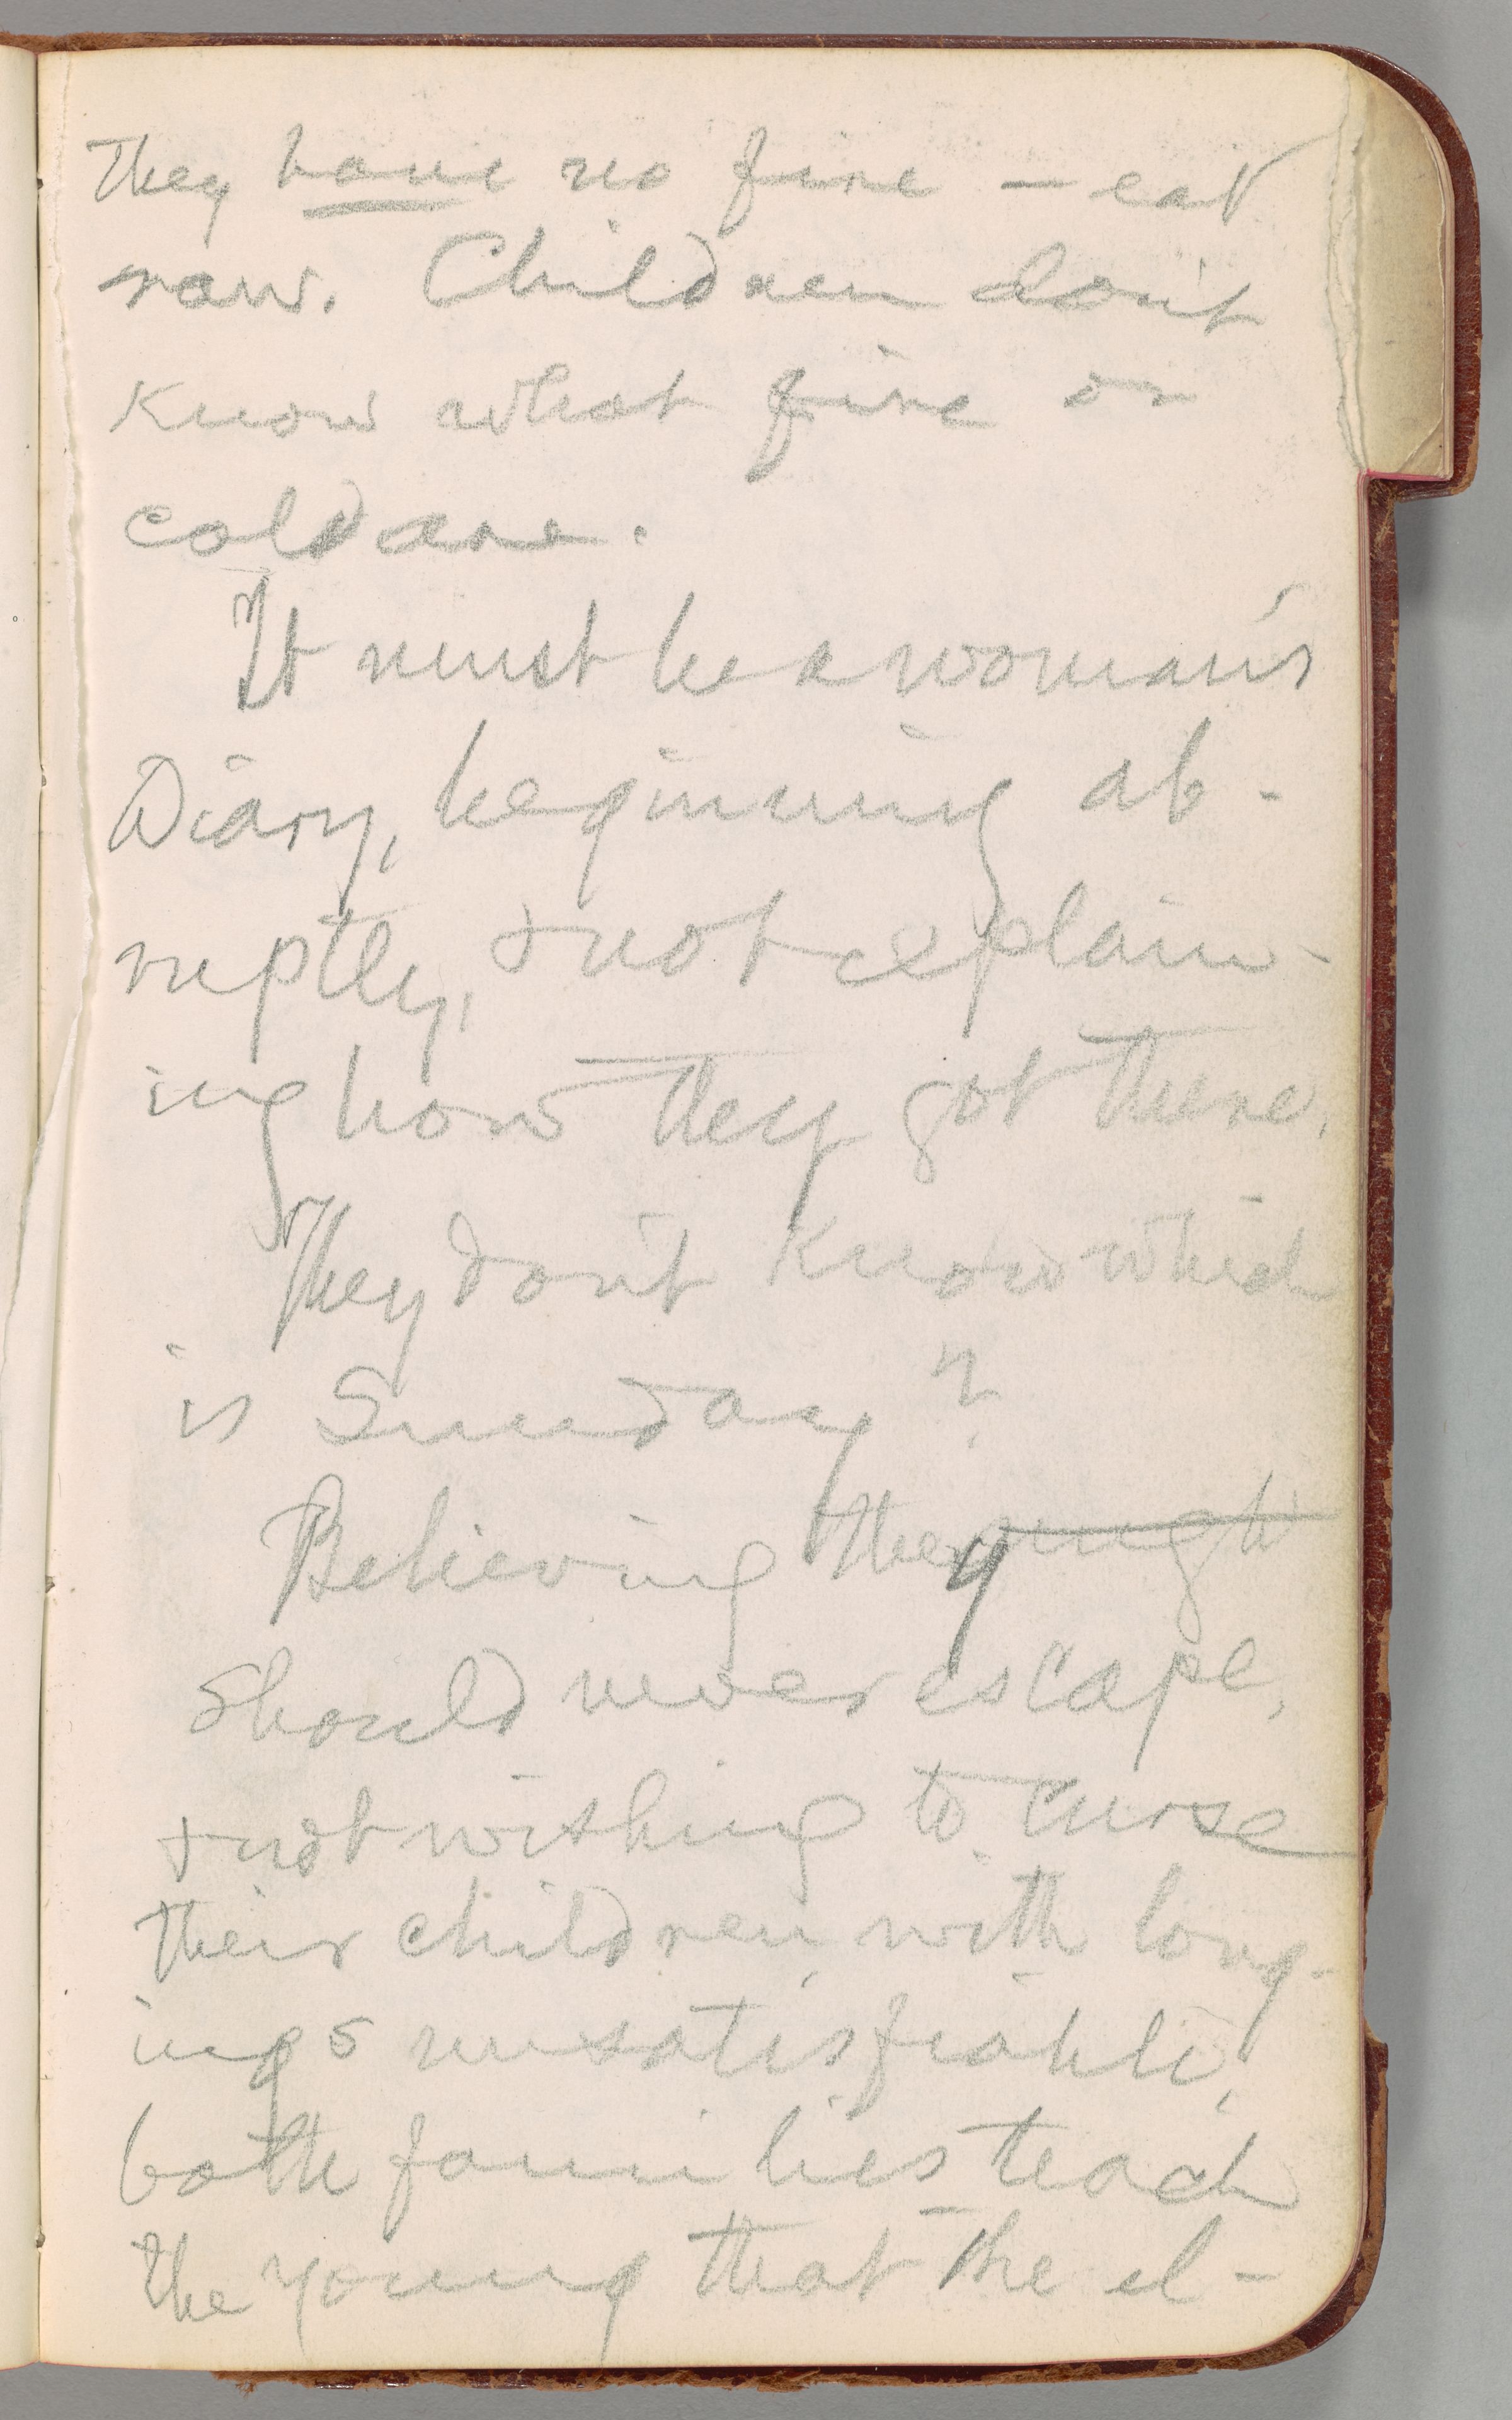 They have no fire – eat
raw. Children don't
know what fire or
cold are.
It must be a woman's
Diary, beginning ab-
ruptly, & not explain-
ing how they got there.
They don't know which
is Sunday?
Believing they ~~might~~
should never escape,
& not wishing to curse
their children with long-
ings unsatisfiable,
both families teach
the young that the el-